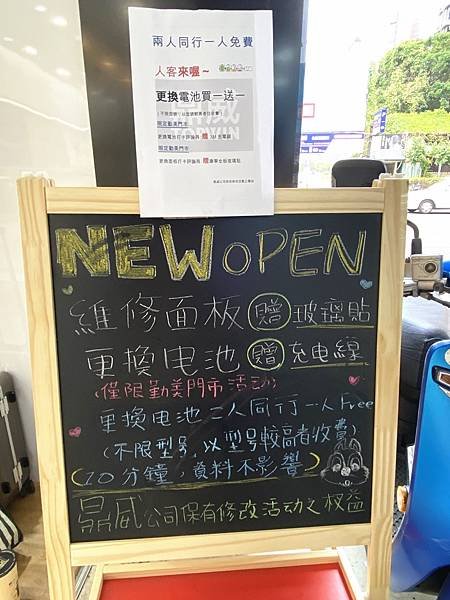 兩人同行一人免費
人客來喔~
更換電池買一送一
限定勤美門市
限定勤美門市
NEW OPEN
維修面板 贈 玻璃貼
更換电池 贈 充电線
(僅限勤美門市活动)
更換电池二人同行一人Free
(不限型号,以型号較高者收費)
(10分鐘,資料不影響)
鼎威公司保有修改活动之权益